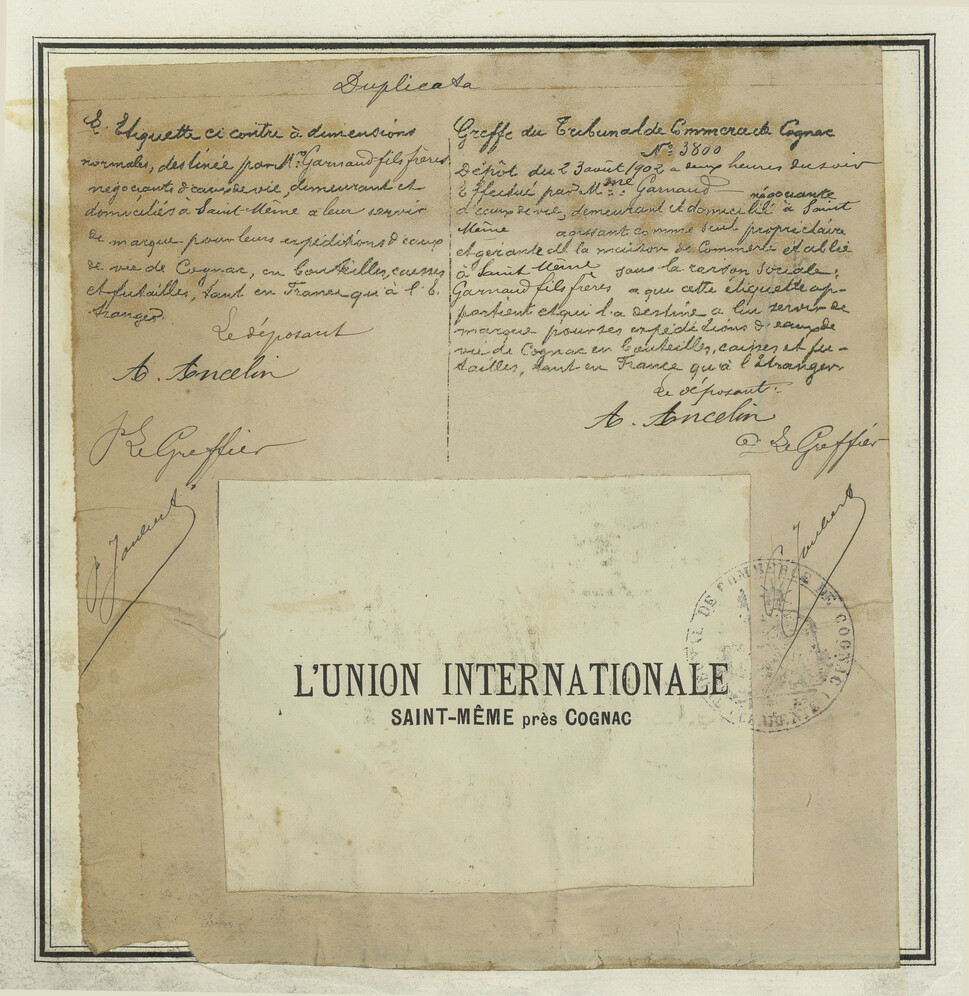 Duplicata
Etiquette ci contre à dimensions
normales, destinée par Mrs Garnaud fils frères
négociants d'eaux de vie, demeurant et
domiciliés à Saint-Même a leur servir
de marque pour leurs expéditions d'eaux
de vie de Cognac, en bouteilles, caisses
et futailles, tant en France qu'à l'E
tranger.
Le déposant
A. Ancelin
Le Greffier
Joubert
Greffe du Tribunal de Commerce de Cognac
No 3800
Dépôt du 23 août 1902 a deux heures du soir
Effectué par Mme Garnaud négociante
d'eaux de vie, demeurant et domicilié à Saint
Même agissant comme seul propriétaire
et gérante de la maison de Commerce établie
à Saint Même sous la raison sociale:
Garnaud fils frères a qui cette étiquette ap-
partient et qui l'a destiné a lui servir de
marque pour ses expéditions d'eaux de
vie de Cognac en bouteilles, caisses et fu-
tailles, tant en France qu'à l'Etranger
Le déposant.
A. Ancelin
Le Greffier
Joubert
TRIBUNAL DE COMMERCE DE COGNAC
L'UNION INTERNATIONALE
SAINT-MÊME près COGNAC